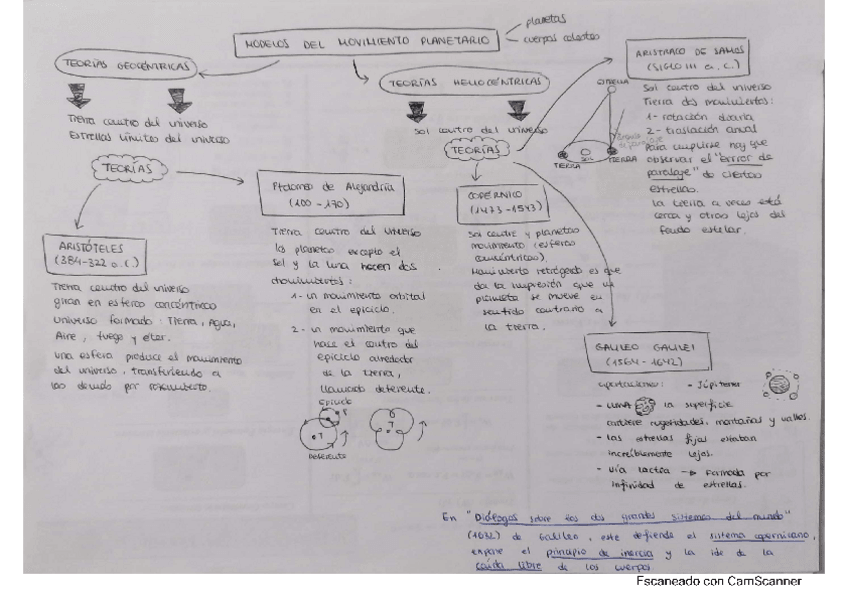 MODELOS DEL MOVIMIENTO PLANETARIO
planetas
cuerpos celestes
TEORÍAS GEOCÉNTRICAS
Tierra centro del universo
Estrellas límites del universo
TEORÍAS
ARISTÓTELES
(384-322 a.C.)
Tierra centro del universo
giran en esferas concéntricas
universo formado: Tierra, Agua,
Aire, fuego y eter.
una esfera produce el movimiento
del universo, transfiriendo a
las demás por rozamiento.
Ptolomeo de Alejandría
(100-170)
Tierra centro del universo
los planetas excepto el
Sol y la luna hacen dos
movimientos:
1- un movimiento orbital
en el epiciclo.
2- un movimiento que
hace el centro del
epiciclo alrededor
de la tierra,
llamado deferente.
Epiciclo
P
T
Deferente
T
TEORÍAS HELIOCÉNTRICAS
Sol centro del universo
TEORÍAS
COPÉRNICO
(1473-1543)
Sol centro y planetas
movimiento (esferas
concéntricas).
Movimiento retrógrado es que
da la impresión que un
planeta se mueve en
sentido contrario a
la tierra.
ARISTRACO DE SAMOS
(SIGLO III a.C.)
Sol centro del universo
Tierra dos movimientos:
1- rotación diaria
2- traslación anual
Para cumplirse hay que
observar el "error de
paralaje" de ciertas
estrellas.
la tierra a veces está
cerca y otras lejos del
fondo estelar.
ESTRELLA
SOL
TIERRA
TIERRA
GALILEO GALILEI
(1564-1642)
aportaciones: - Júpiter
- LUNA la superficie
contiene rugosidades, montañas y valles.
- las estrellas fijas estaban
increíblemente lejos.
- vía láctea → formada por
infinidad de estrellas.
En "Diálogos sobre los dos grandes sistemas del mundo"
(1632) de Galileo, este defiende el sistema copernicano,
expone el principio de inercia y la ide de la
caída libre de los cuerpos
Escaneado con CamScanner